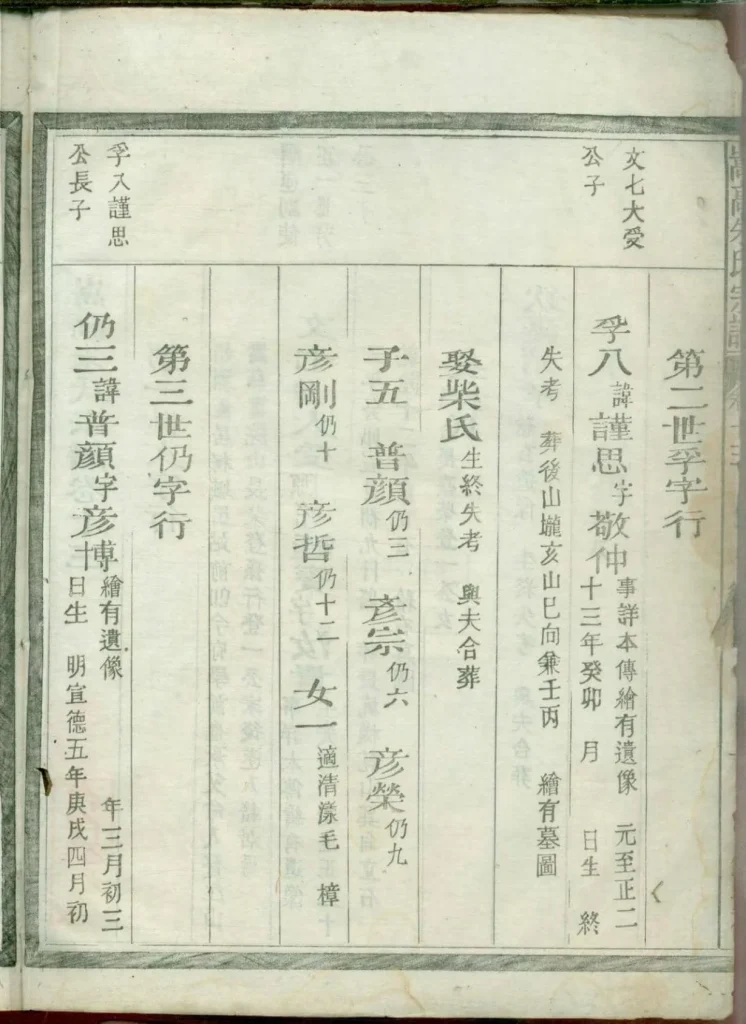 嵩高朱氏宗譜
第二世孚字行
文七大受
公子
孚八 諱謹思字敬仲 事詳本傳繪有遺像 元至正二
十三年癸卯 月 日生 終
失考 葬後山壠亥山巳向兼壬丙 繪有墓圖
娶柴氏 生終失考 與夫合葬
子五 普顏仍三 彥宗仍六 彥榮仍九
彥剛仍十 彥哲仍十二 女一 適清漾毛正樟
第三世仍字行
孚八謹思
公長子
仍三 諱普顏字彥博 繪有遺像 年三月初三
日生 明宣德五年庚戌四月初